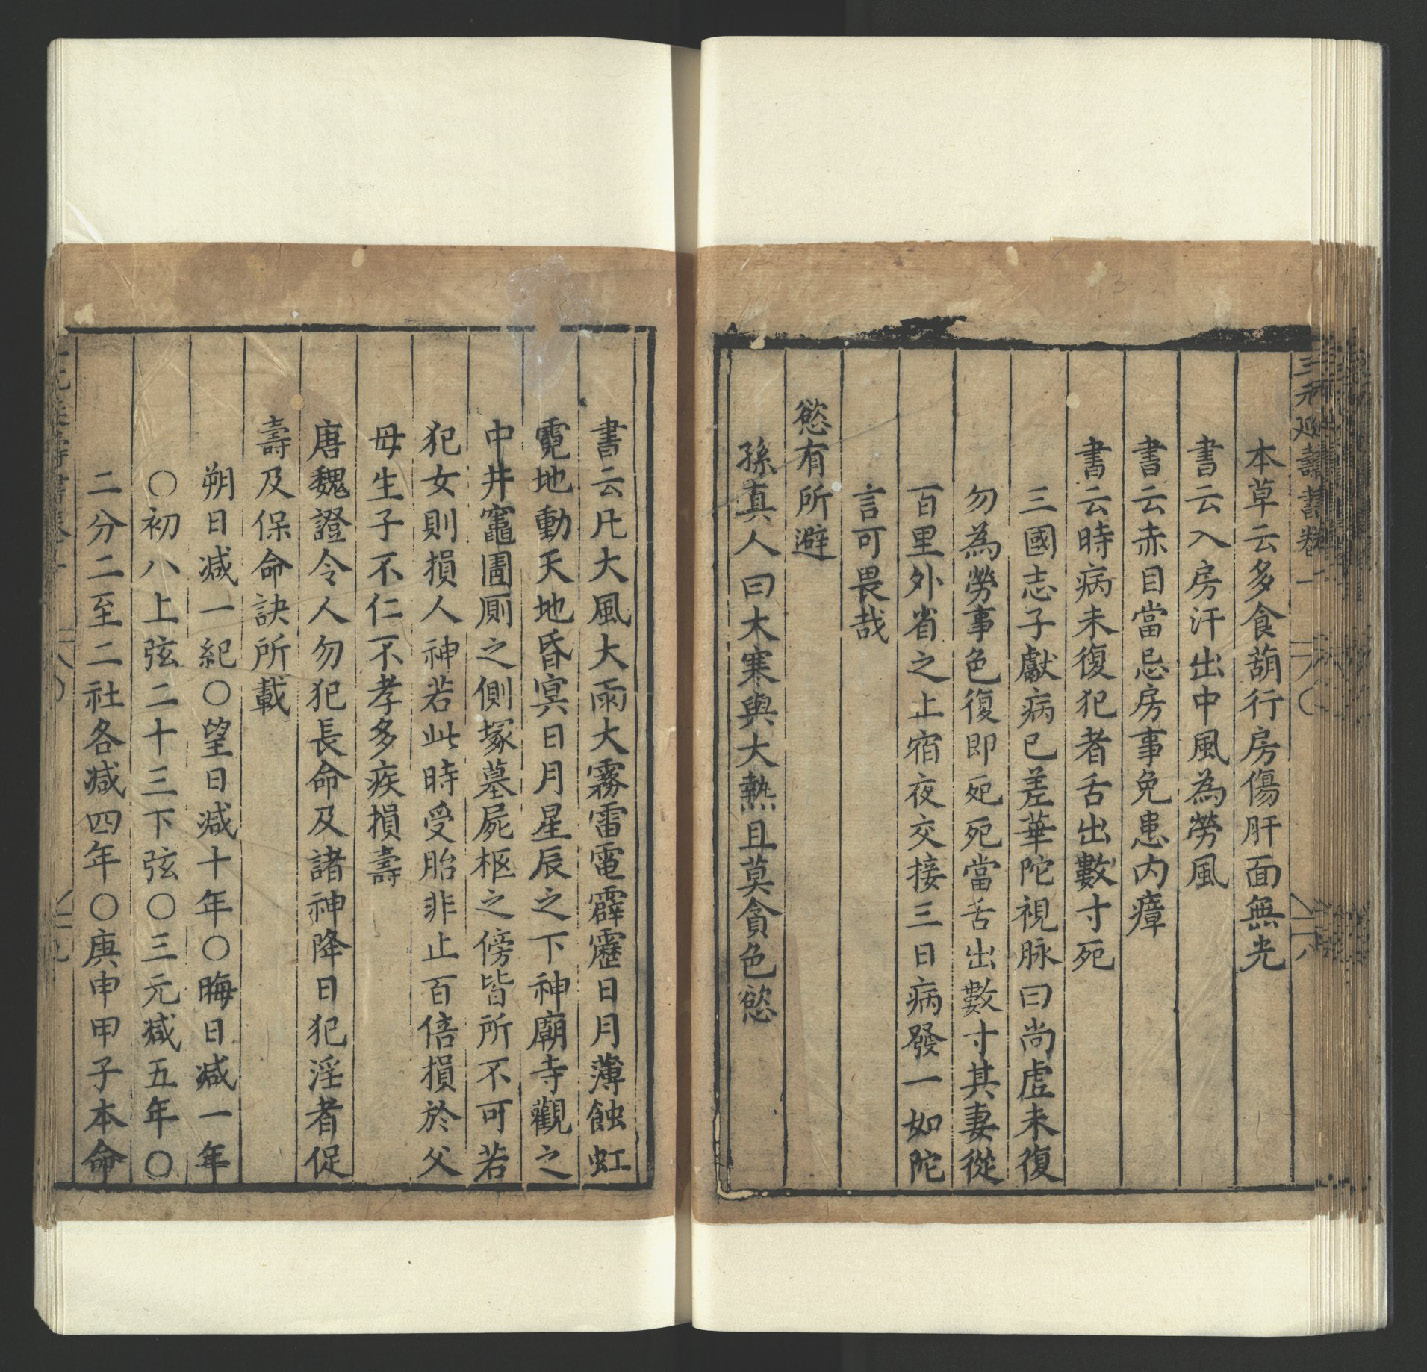 三元延壽書卷一
本草云多食葫行房傷肝面無光
書云入房汗出中風為勞風
書云赤目當忌房事免患內瘴
書云時病未復犯者舌出數寸死
三國志子獻病已差華陀視脉曰尚虛未復
勿為勞事色復即死死當舌出數寸其妻從
百里外省之止宿夜交接三日病發一如陀
言可畏哉
慾有所避
孫真人曰大寒與大熱且莫貪色慾
書云凡大風大雨大霧雷電霹靂日月薄蝕虹
霓地動天地昏冥日月星辰之下神廟寺觀之
中井竈圊厠之側塚墓屍柩之傍皆所不可若
犯女則損人神若此時受胎非止百倍損於父
母生子不仁不孝多疾損壽
唐魏證令人勿犯長命及諸神降日犯淫者促
壽及保命訣所載
朔日减一紀○望日减十年○晦日减一年
○初八上弦二十三下弦○三元减五年○
二分二至二社各减四年○庚申甲子本命